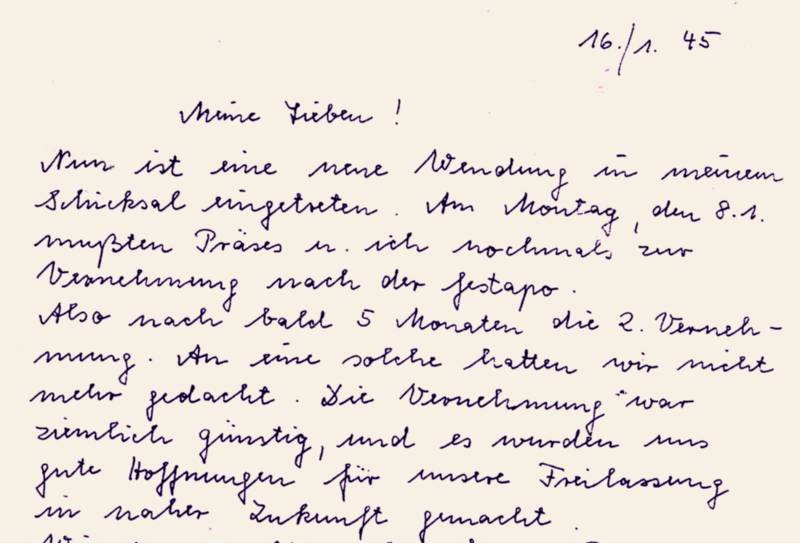 16./1. 45
Meine Lieben!
Nun ist eine neue Wendung in meinem
Schicksal eingetreten. Am Montag, den 8.1.
mußten Präses u. ich nochmals zur
Vernehmung nach der Gestapo.
Also nach bald 5 Monaten die 2. Verneh-
mung. An eine solche hatten wir nicht
mehr gedacht. Die Vernehmung war
ziemlich günstig, und es wurden uns
gute Hoffnungen für unsere Freilassung
in naher Zukunft gemacht.